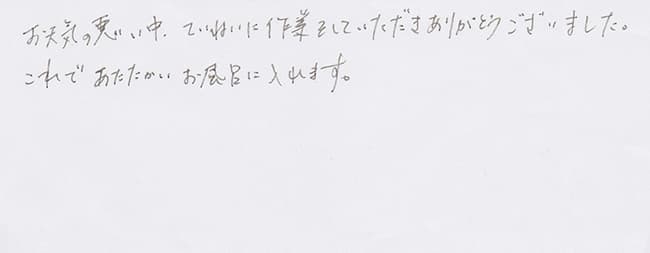 お天気の悪い中、ていねいに作業をしていただきありがとうございました。
これであたたかいお風呂に入れます。